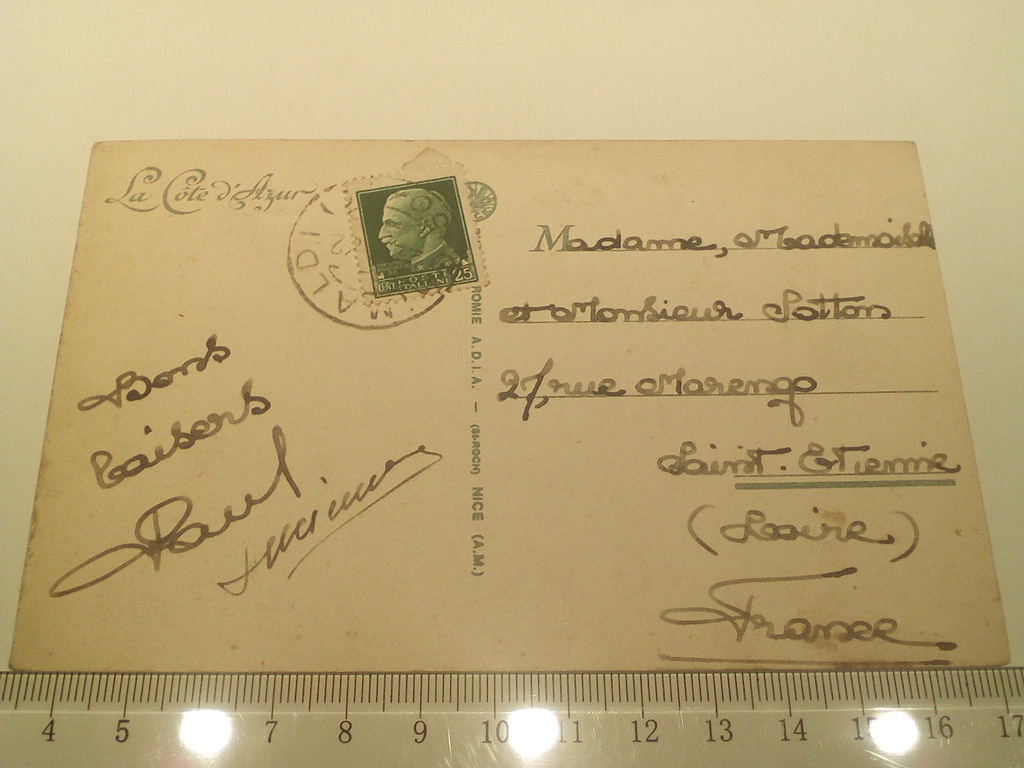 La Côte d'Azur
ALDI
POSTE
ITALIANE
CENT. 25
Bons
baisers
Paul
ROMIE A.D.I.A. — (St-ROCH) NICE (A.M.)
Madame, Mademoiselle
et Monsieur Sotton
27, rue Marengo
Saint-Etienne
(Loire)
France
4 5 7 8 9 10 11 12 13 14 15 16 17